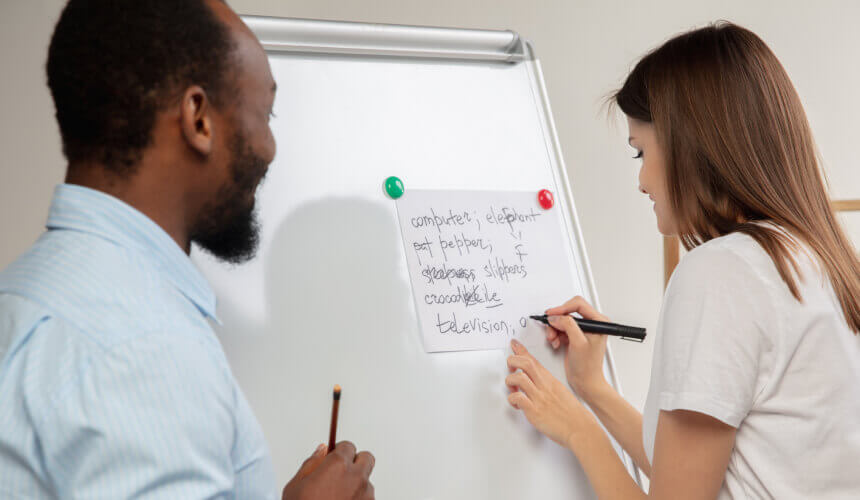 computer; elephant
pepper;
f
slippers
crocodile
television, a